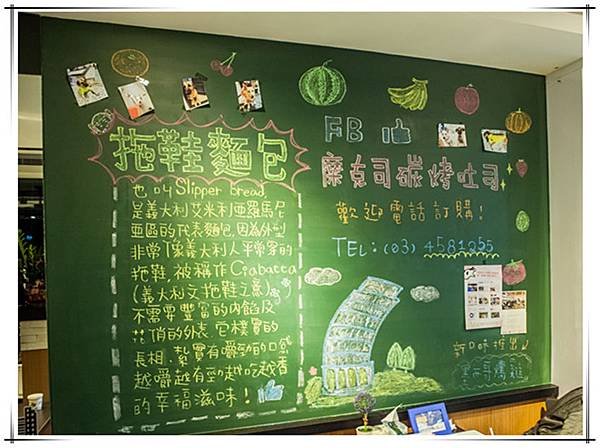 拖鞋麵包
也叫Slipper bread
是義大利艾米利亞羅馬尼
亞區的代表麵包,因為外型
非常像義大利人平常穿的
拖鞋,被稱作Ciabacta
(義大利文拖鞋之意)。
不需要豐富的內餡及
花俏的外表,它樸實的
長相,紮實有嚼勁的口感
越嚼越有勁越吃越香
的幸福滋味!
FB
摩克司碳烤吐司
歡迎電話訂購!
TEL:(03) 4581255
新口味推出